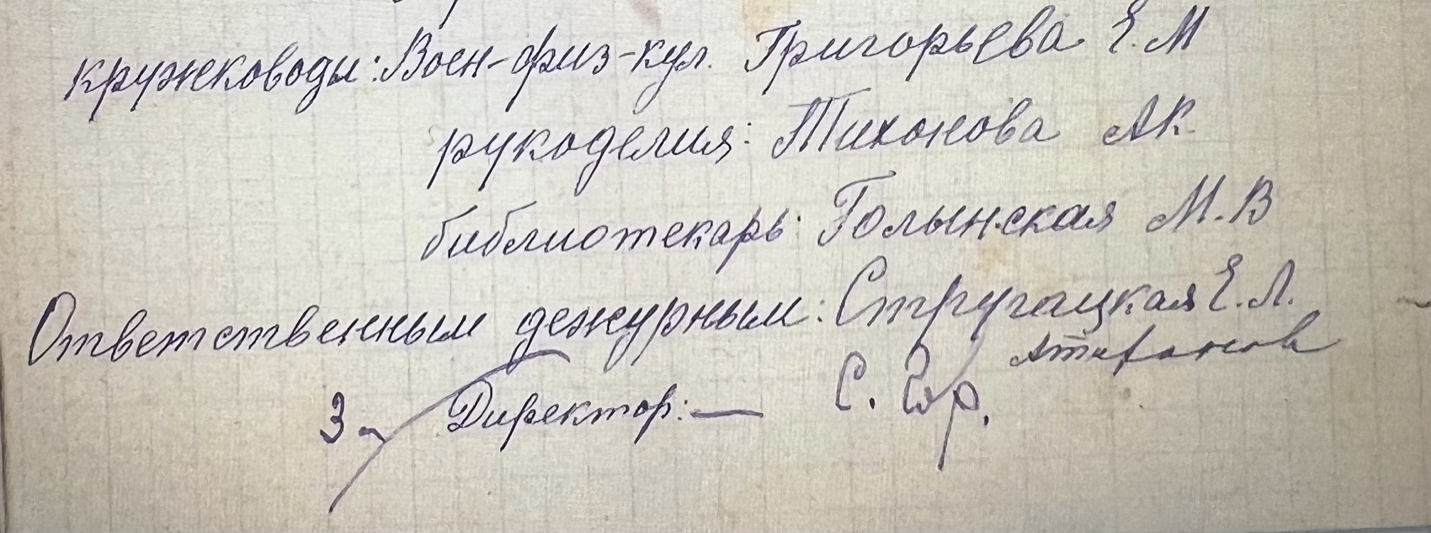 кружководы: Воен-физ-кул. Григорьева Е.М
рукоделия: Тихонова АК.
библиотекарь: Голынская М.В
Ответственным дежурным: Стругацкая Е.Л.
За Директор: — С.